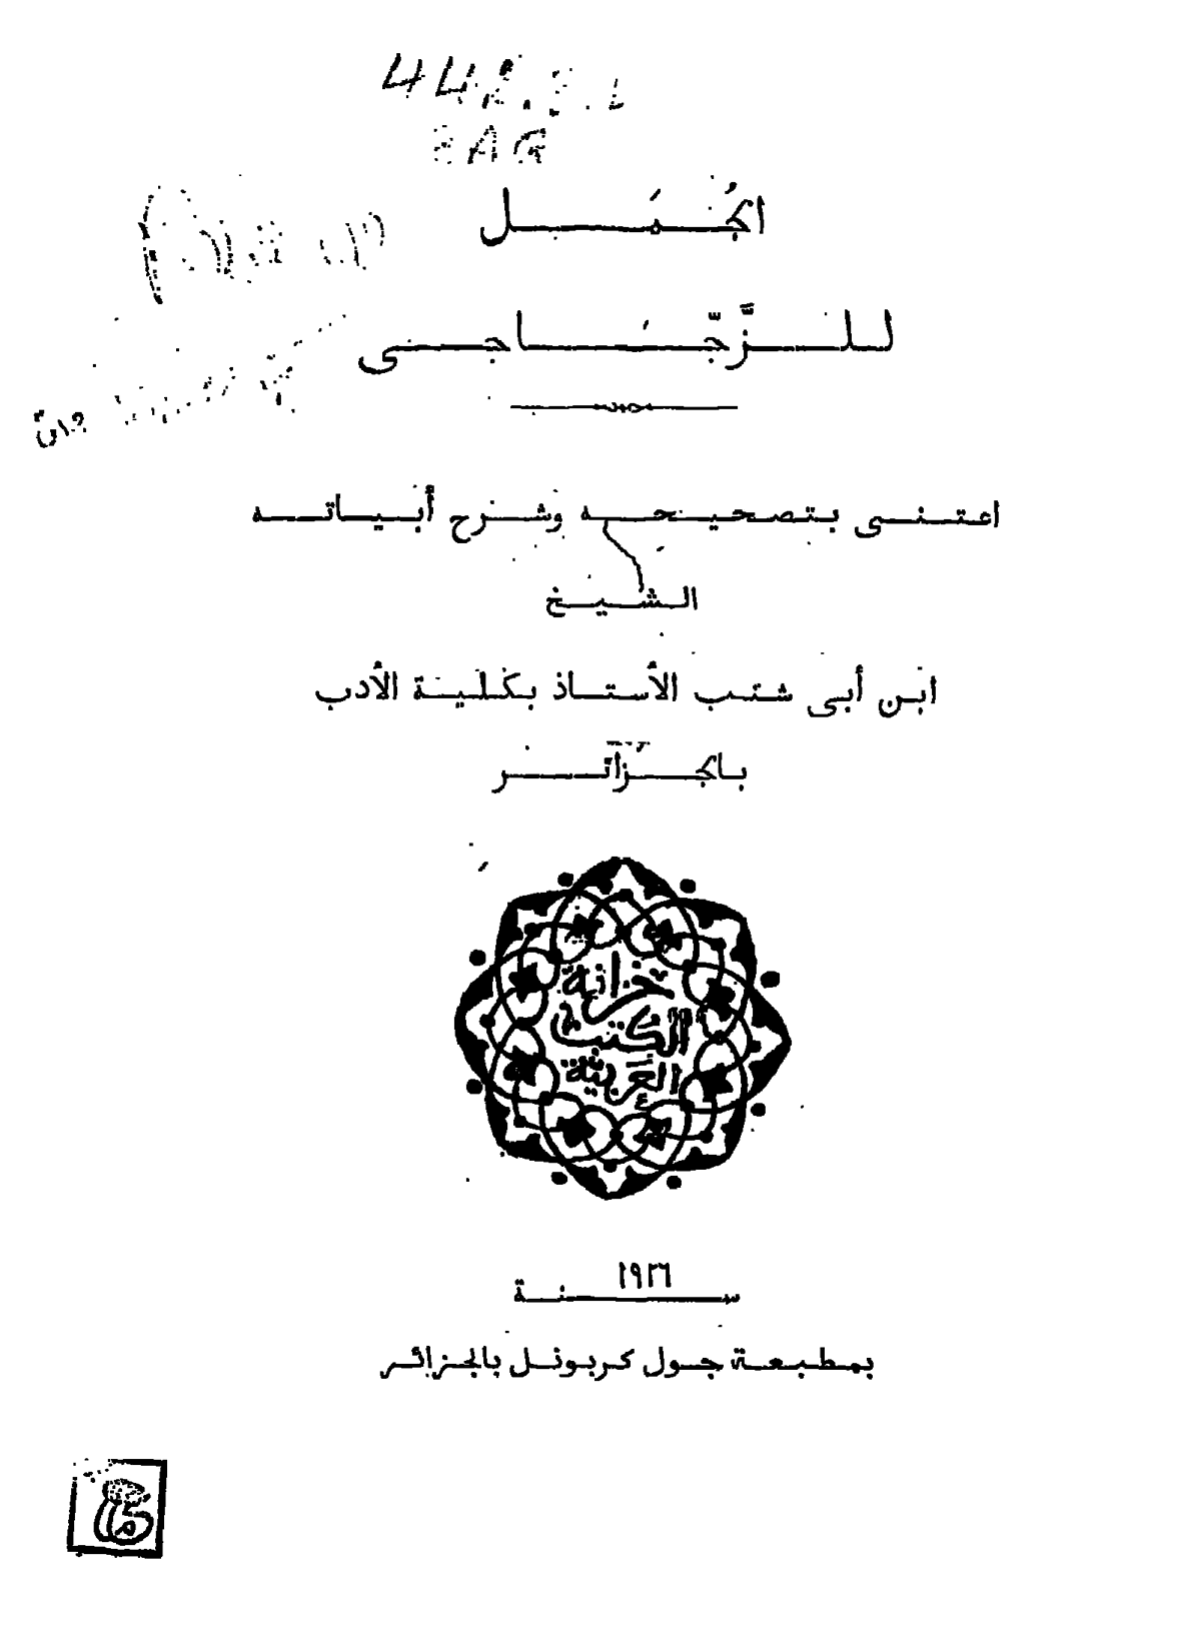 الجُمَل
للزَّجّاجى
اعتنى بتصحيحه وشرح أبياته
الشيخ
ابن أبى شنب الأستاذ بكلية الأدب
بالجزائر
خزانة
الكتب
العربية
سنة ١٩٢٦
بمطبعة جول كربونل بالجزائر